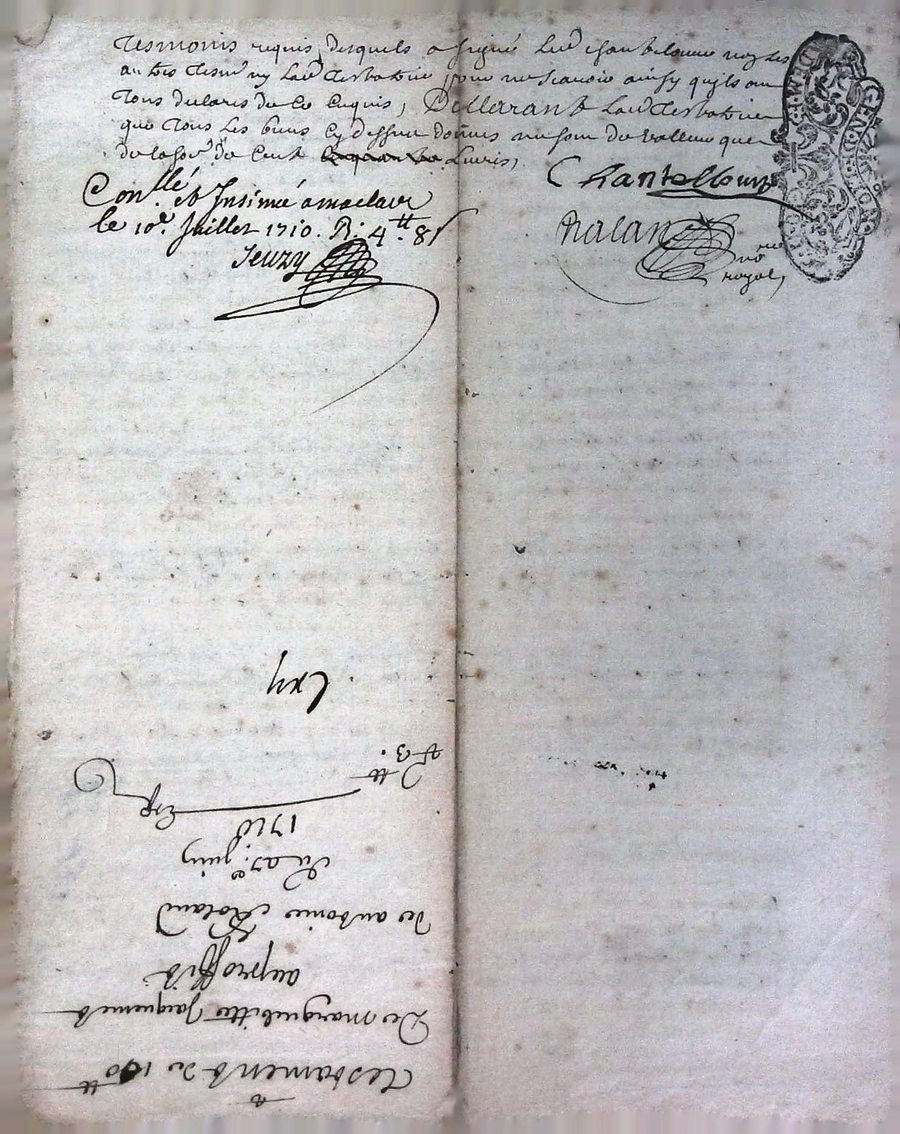 Tesmonis requis, desquels a signé led. Chantelouve non les
autres tesm. ny lad. Testatrice, pour ne scavoir ainsy quils ont
Tous declarés de ce Enquis, Declarant lad. Testatrice
que Tous Les biens Cy dessus donnés ne sont de valleur que
de la so. de Cent Livres,
Chantellouve
Con.llé & Insinué a
le 10e. Juillet 1710. R. 4tt. 8s
Jeuzy
Ralan
no.re
royal,
GEN
Testament de 100tt
De marguerite Jacquemet
au proffit
de antoine Roland
Du 27e. juin
1710
Exp.
2tt
3.